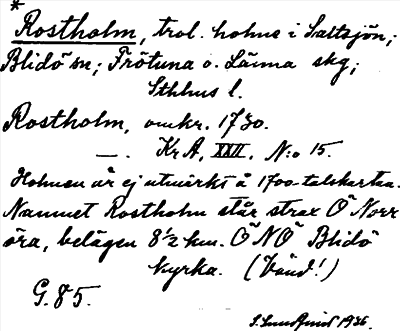 *
Rostholm, trol. holme i Saltsjön;
Blidö sn; Frötuna o. Länna skg;
Sthlms l.
Rostholm, omkr. 1730.
—. Kr A, XXII, N:o 15.
Holmen är ej utmärkt å 1700-talskartan.
Namnet Rostholm står strax Ö Norr
öra, belägen 8 1/2 km. ÖNÖ Blidö
kyrka. (Vänd!)
G. 85.
1936